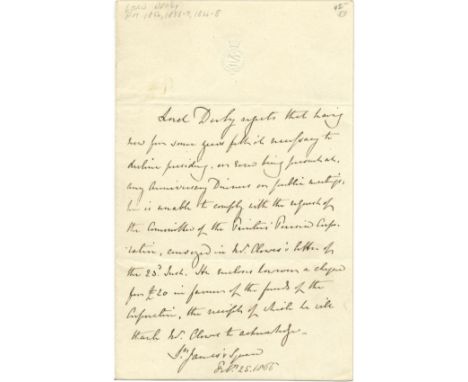 LORD DERBY
PM 1852, 1858-9, 1866-8
Lord Derby regrets that having
now for some years felt it necessary to
decline presiding, or even being present at,
any Anniversary Dinners or public meetings,
he is unable to comply with the request of
the Committee of the Printers' Pension Corpo-
ration, conveyed in Mr. Clowes's letter of
the 23d Inst. He encloses however a cheque
for £20 in favour of the funds of the
Corporation, the receipt of which he will
thank Mr. Clowes to acknowledge.
St. James's Square
Feby. 25. 1866